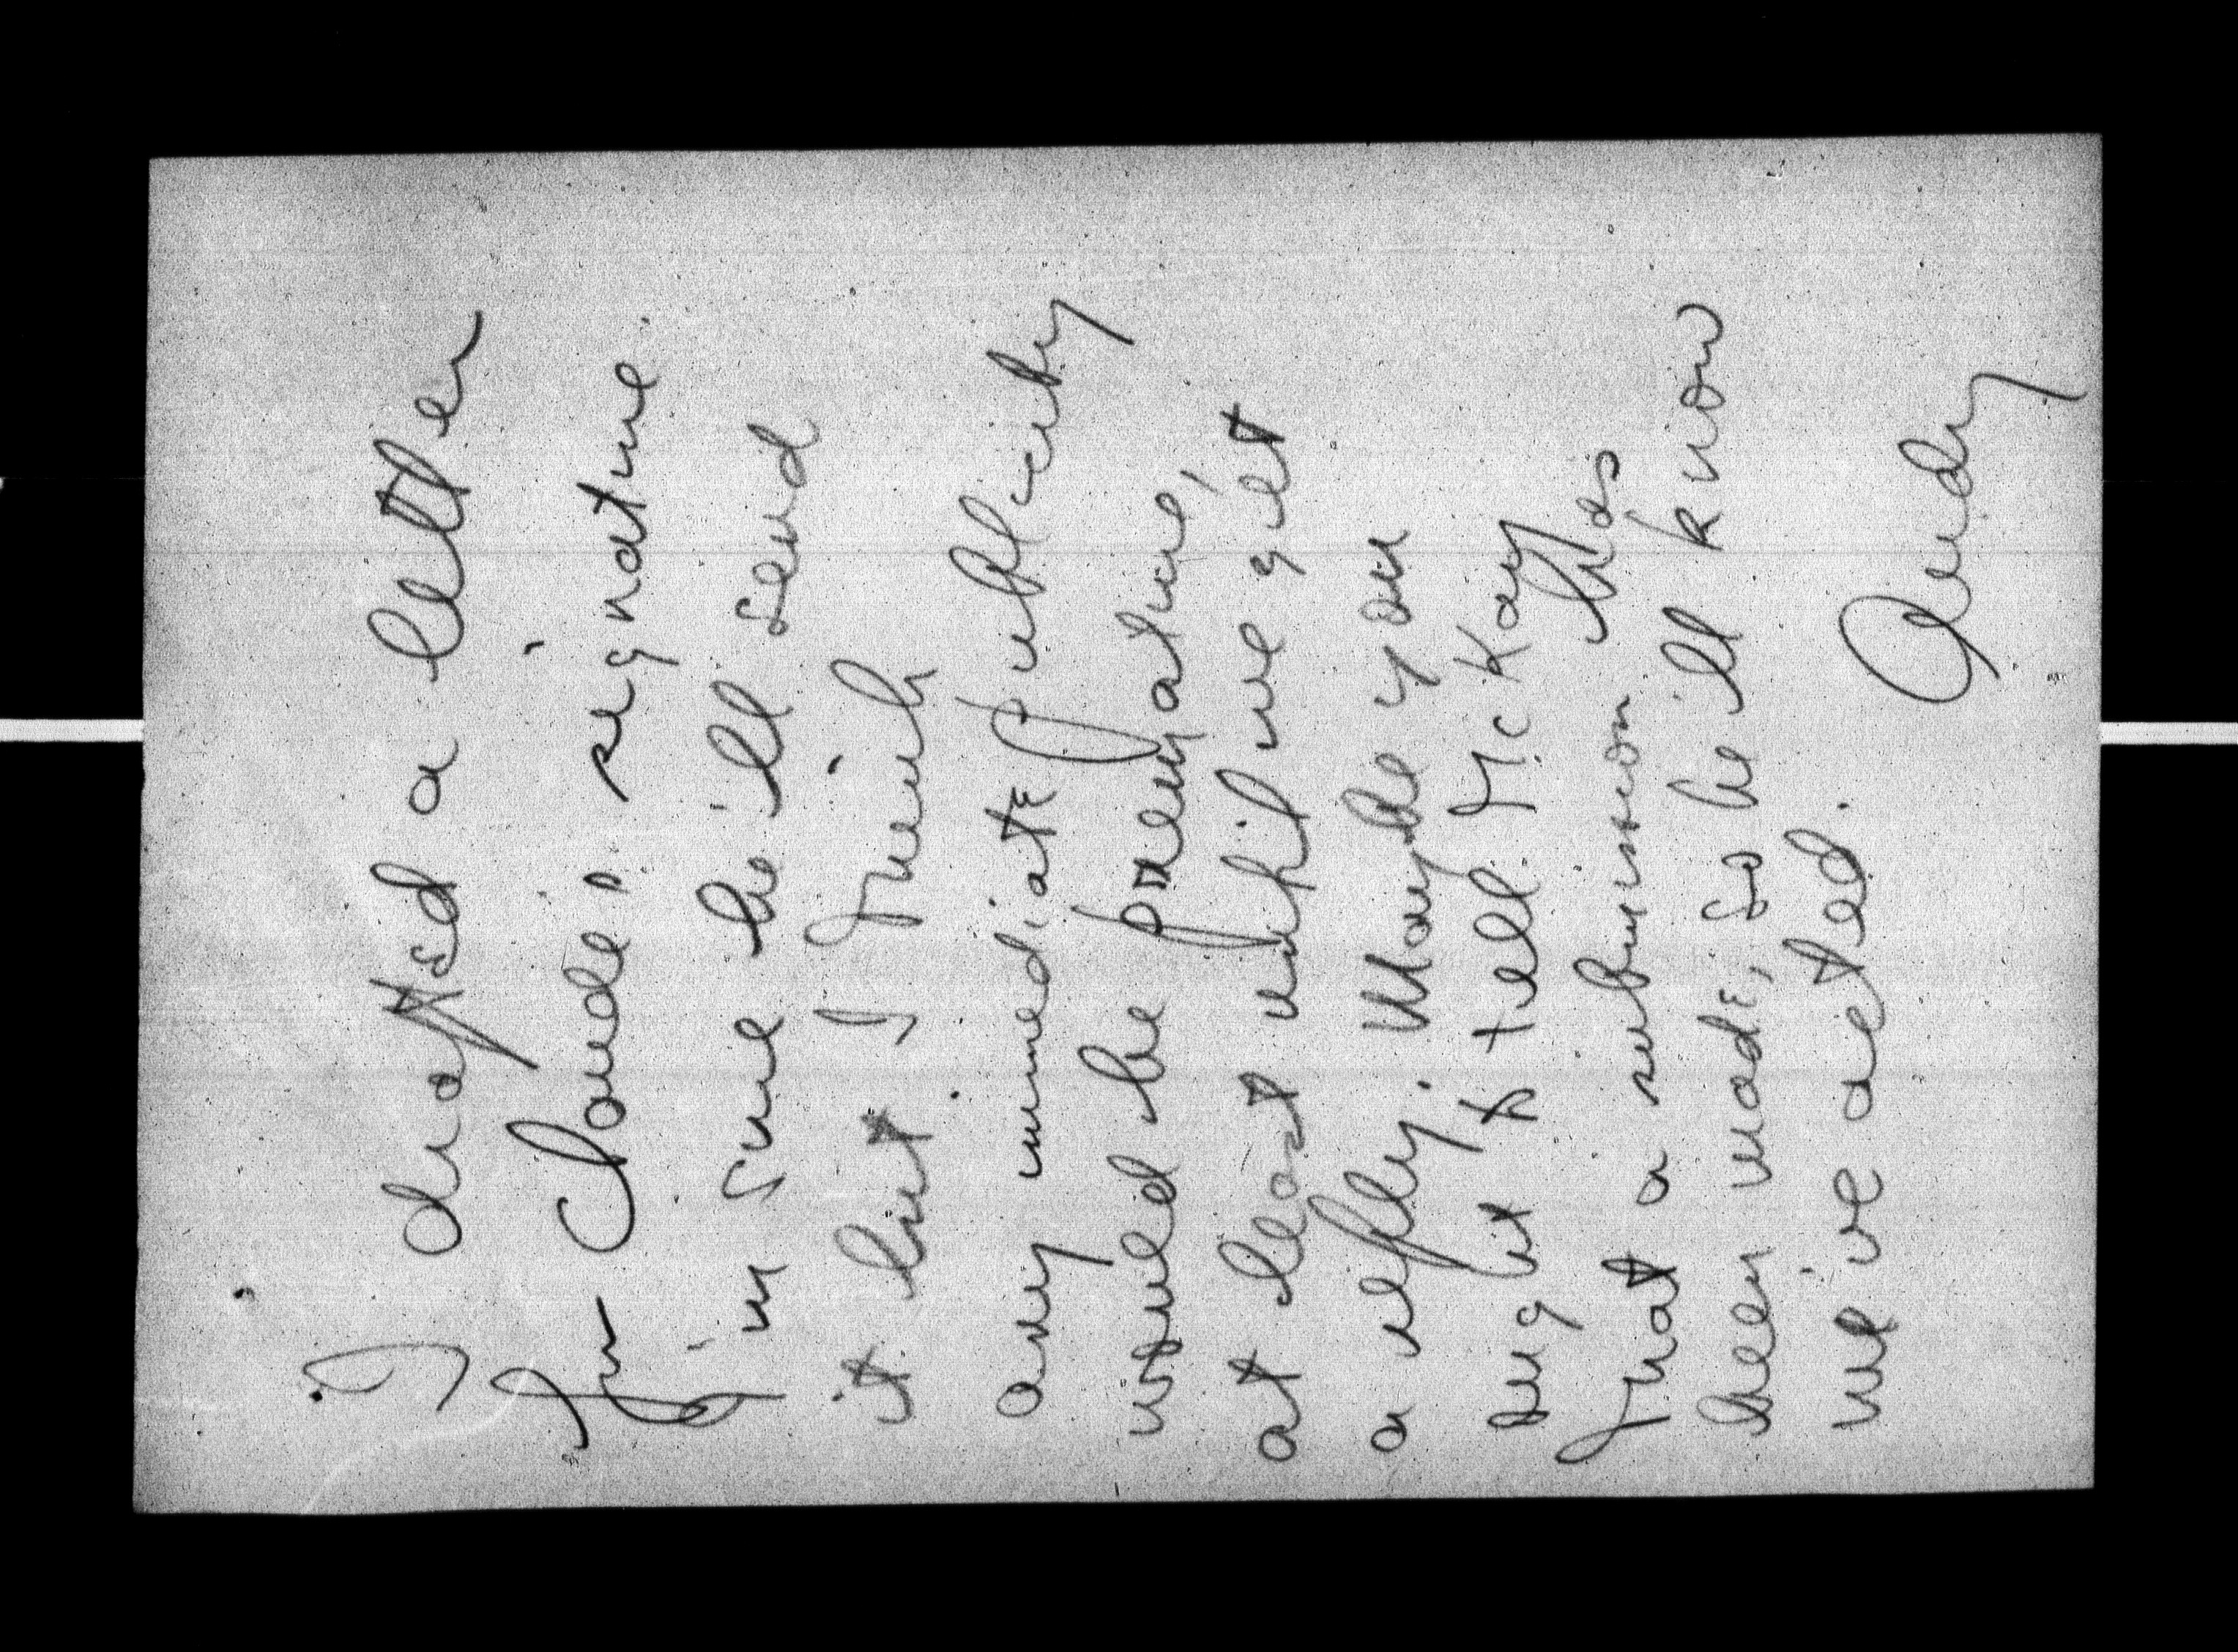 I drafted a letter
for Claude's signature
I'm sure he'll send
it but I think
any immediate publicity
would be premature,
at least until we get
a reply. Maybe you
might to tell McKay
that a submission has
been made, so he'll know
we've acted.
Andy